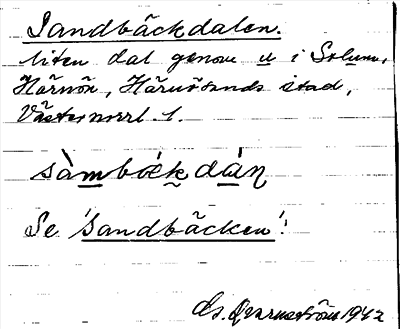 Sandbäckdalen.
liten dal genom u i Solum,
Härnön, Härnösands stad,
Västernorrl. l.
sàmbǿkdán
Se 'Sandbäcken'!
Qvarnström 1942